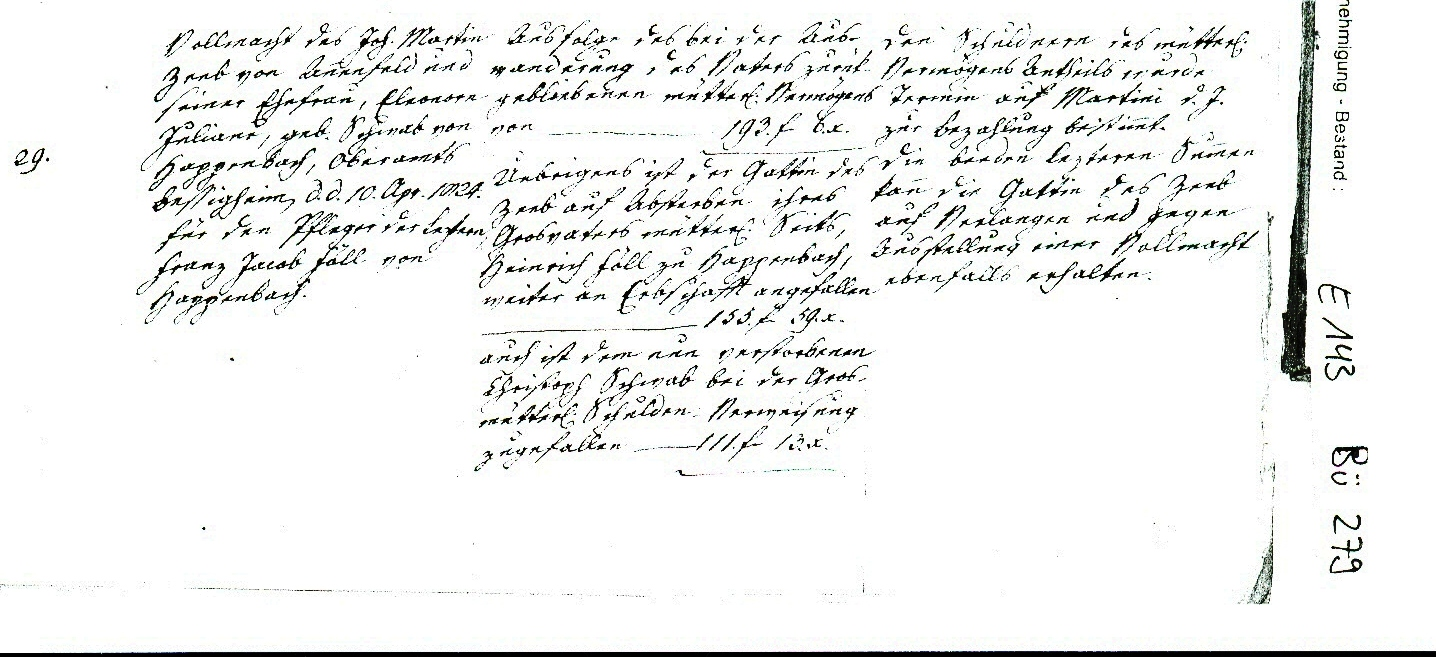 29.
Vollmacht des Joh. Martin
Zeeb von Annenfeld und
seiner Ehefrau, Eleonore
Juliane, geb. Schwab von
Happenbach, Oberamts
Besigheim, d.d. 10. Apr. 1824.
für den Pfleger der leztern
Franz Jacob Föll von
Happenbach.
Ausfolge des bei der Aus-
wanderung des Vaters zurük
gebliebenen mütterl. Vermögens
von 193.f 8.x.
Uebrigens ist der Gattin des
Zeeb auf Absterben ihres
Grosvaters mütterl. Seits,
Heinrich Föll zu Happenbach,
weiter an Erbschafft angefallen
155.f 59.x.
auch ist dem nun verstorbenen
Christoph Schwab bei der Gros-
mütterl. Schulden Verweisung
zugefallen 111.f 13.x.
Den Schuldnern des mütterl.
Vermögens Antheils wurde
Termin auf Martini d. J.
zur Bezahlung bestimt.
Die beeden lezteren Sumen
kan die Gattin des Zeeb
auf Verlangen und gegen
Ausstellung einer Vollmacht
ebenfalls erhalten.
nehmigung - Bestand:
E 143 Bü 279